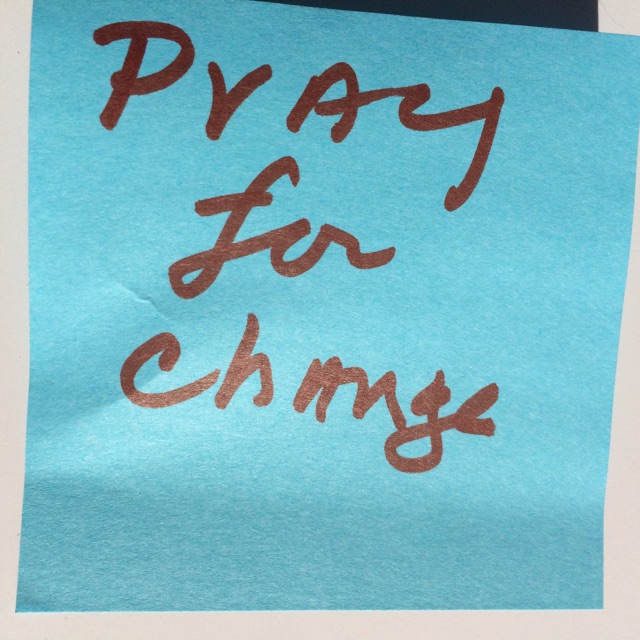 Pray
for
change